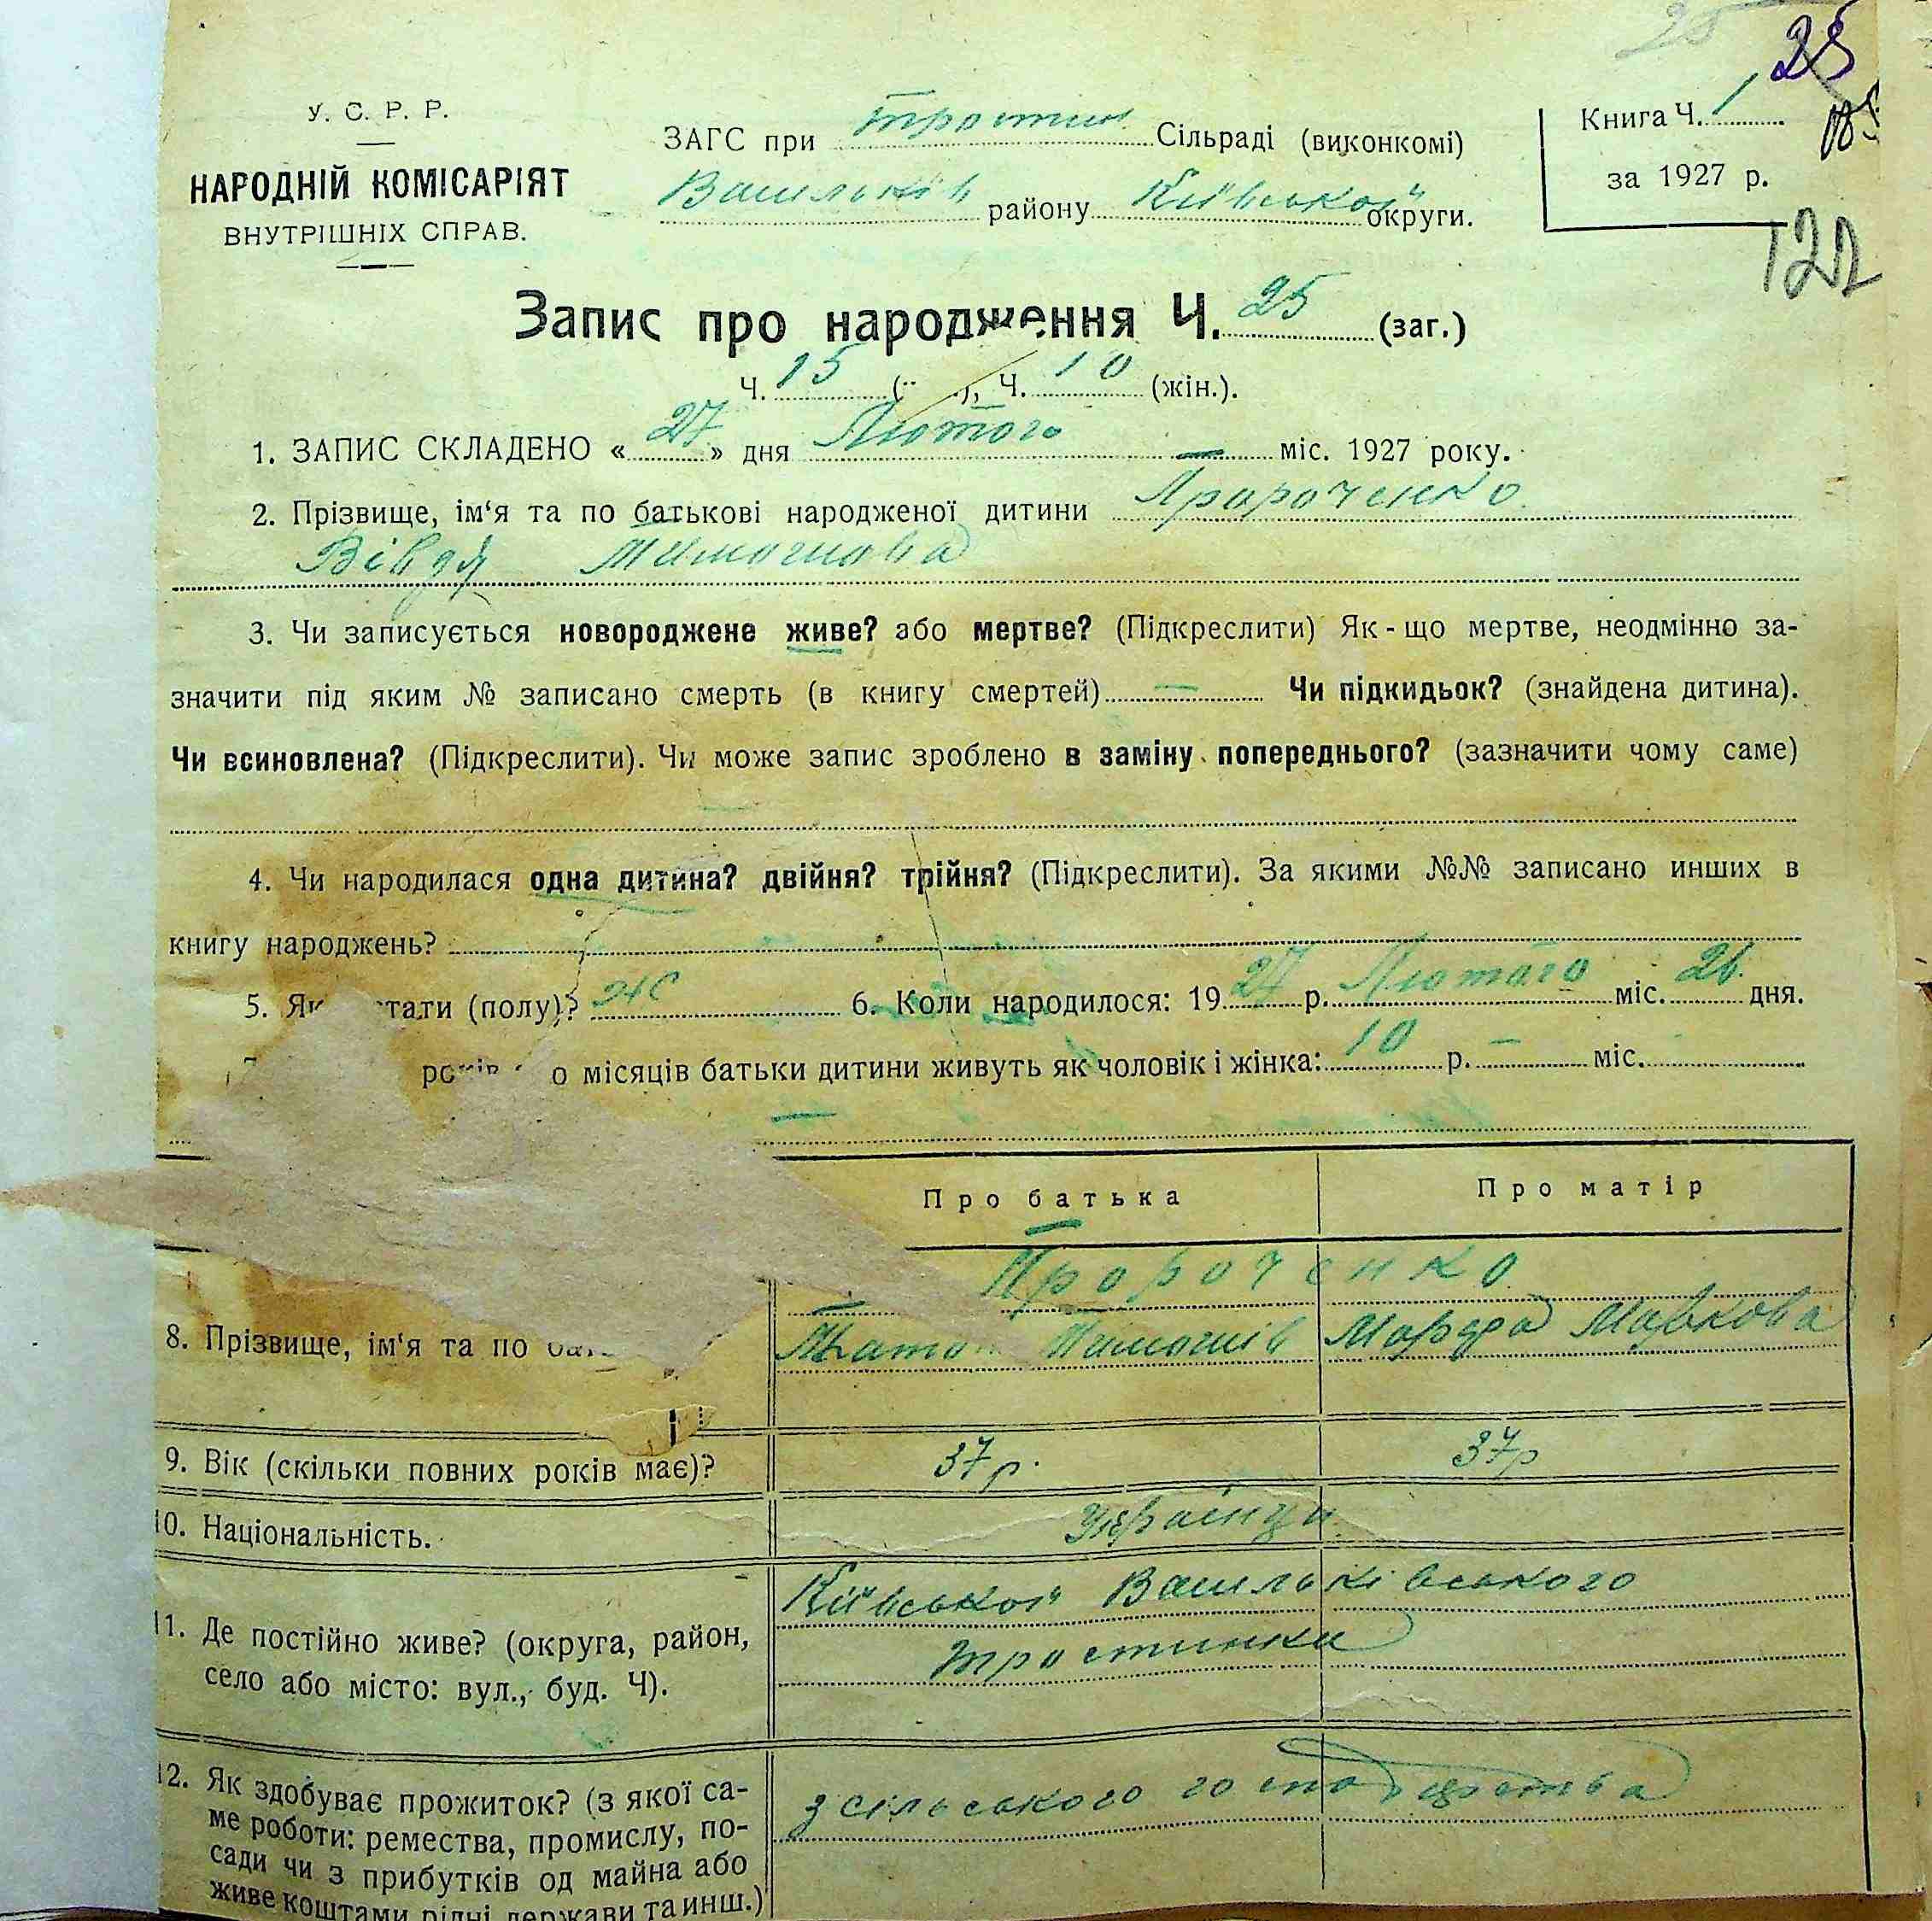 25 25
У. С. Р. Р.
НАРОДНІЙ КОМІСАРІЯТ
ВНУТРІШНІХ СПРАВ.
ЗАГС при Тростин Сільраді (виконкомі)
Васильків району Київської округи.
Книга Ч. 1
за 1927 р.
122
Запис про народження Ч. 25 (заг.)
Ч. 15 Ч. 10 (жін.).
1. ЗАПИС СКЛАДЕНО « 27 » дня Лютого міс. 1927 року.
2. Прізвище, ім‘я та по батькові народженої дитини Пророченко
Вівдя Тимошова
3. Чи записується новороджене живе? або мертве? (Підкреслити) Як-що мертве, неодмінно за-
значити під яким № записано смерть (в книгу смертей) — Чи підкидьок? (знайдена дитина).
Чи всиновлена? (Підкреслити). Чи може запис зроблено в заміну попереднього? (зазначити чому саме)
—
4. Чи народилася одна дитина? двійня? трійня? (Підкреслити). За якими №№ записано инших в
книгу народжень?
5. Як тати (полу)? ж 6. Коли народилося: 19 27 р. Лютого міс. 26 дня.
о місяців батьки дитини живуть як чоловік і жінка: 10 р. — міс.
—
Про батька Про матір
Пророченко
8. Прізвище, ім‘я та по Тимошів Марфа Мавкова
9. Вік (скільки повних років має)? 37 р. 37 р
10. Національність. Українци
11. Де постійно живе? (округа, район, село або місто: вул., буд. Ч). Київської Васильківського
Тростинка
12. Як здобуває прожиток? (з якої са-
ме роботи: ремества, промислу, по-
сади чи з прибутків од майна або
живе коштами рідні держави та инш.)
з сільського господарства